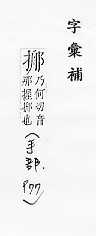 字彙補
挪
乃何切音
那搓挪也
(手部,